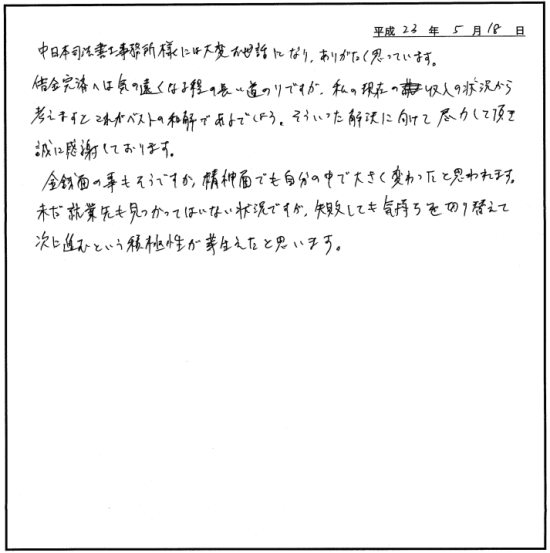 平成 23 年 5 月 18 日
中日本司法書士事務所様には大変お世話になり、ありがたく思っています。
借金完済へは気の遠くなる程の長い道のりですが、私の現在の収入の状況から
考えますと これがベストの和解であるでしょう。そういった解決に向けて尽力して頂き
誠に感謝しております。
金銭面の事もそうですが、精神面でも自分の中で大きく変わったと思われます。
未だ就業先も見つかってはいない状況ですが、失敗しても気持ちを切り替えて
次に進むという積極性が芽生えたと思います。